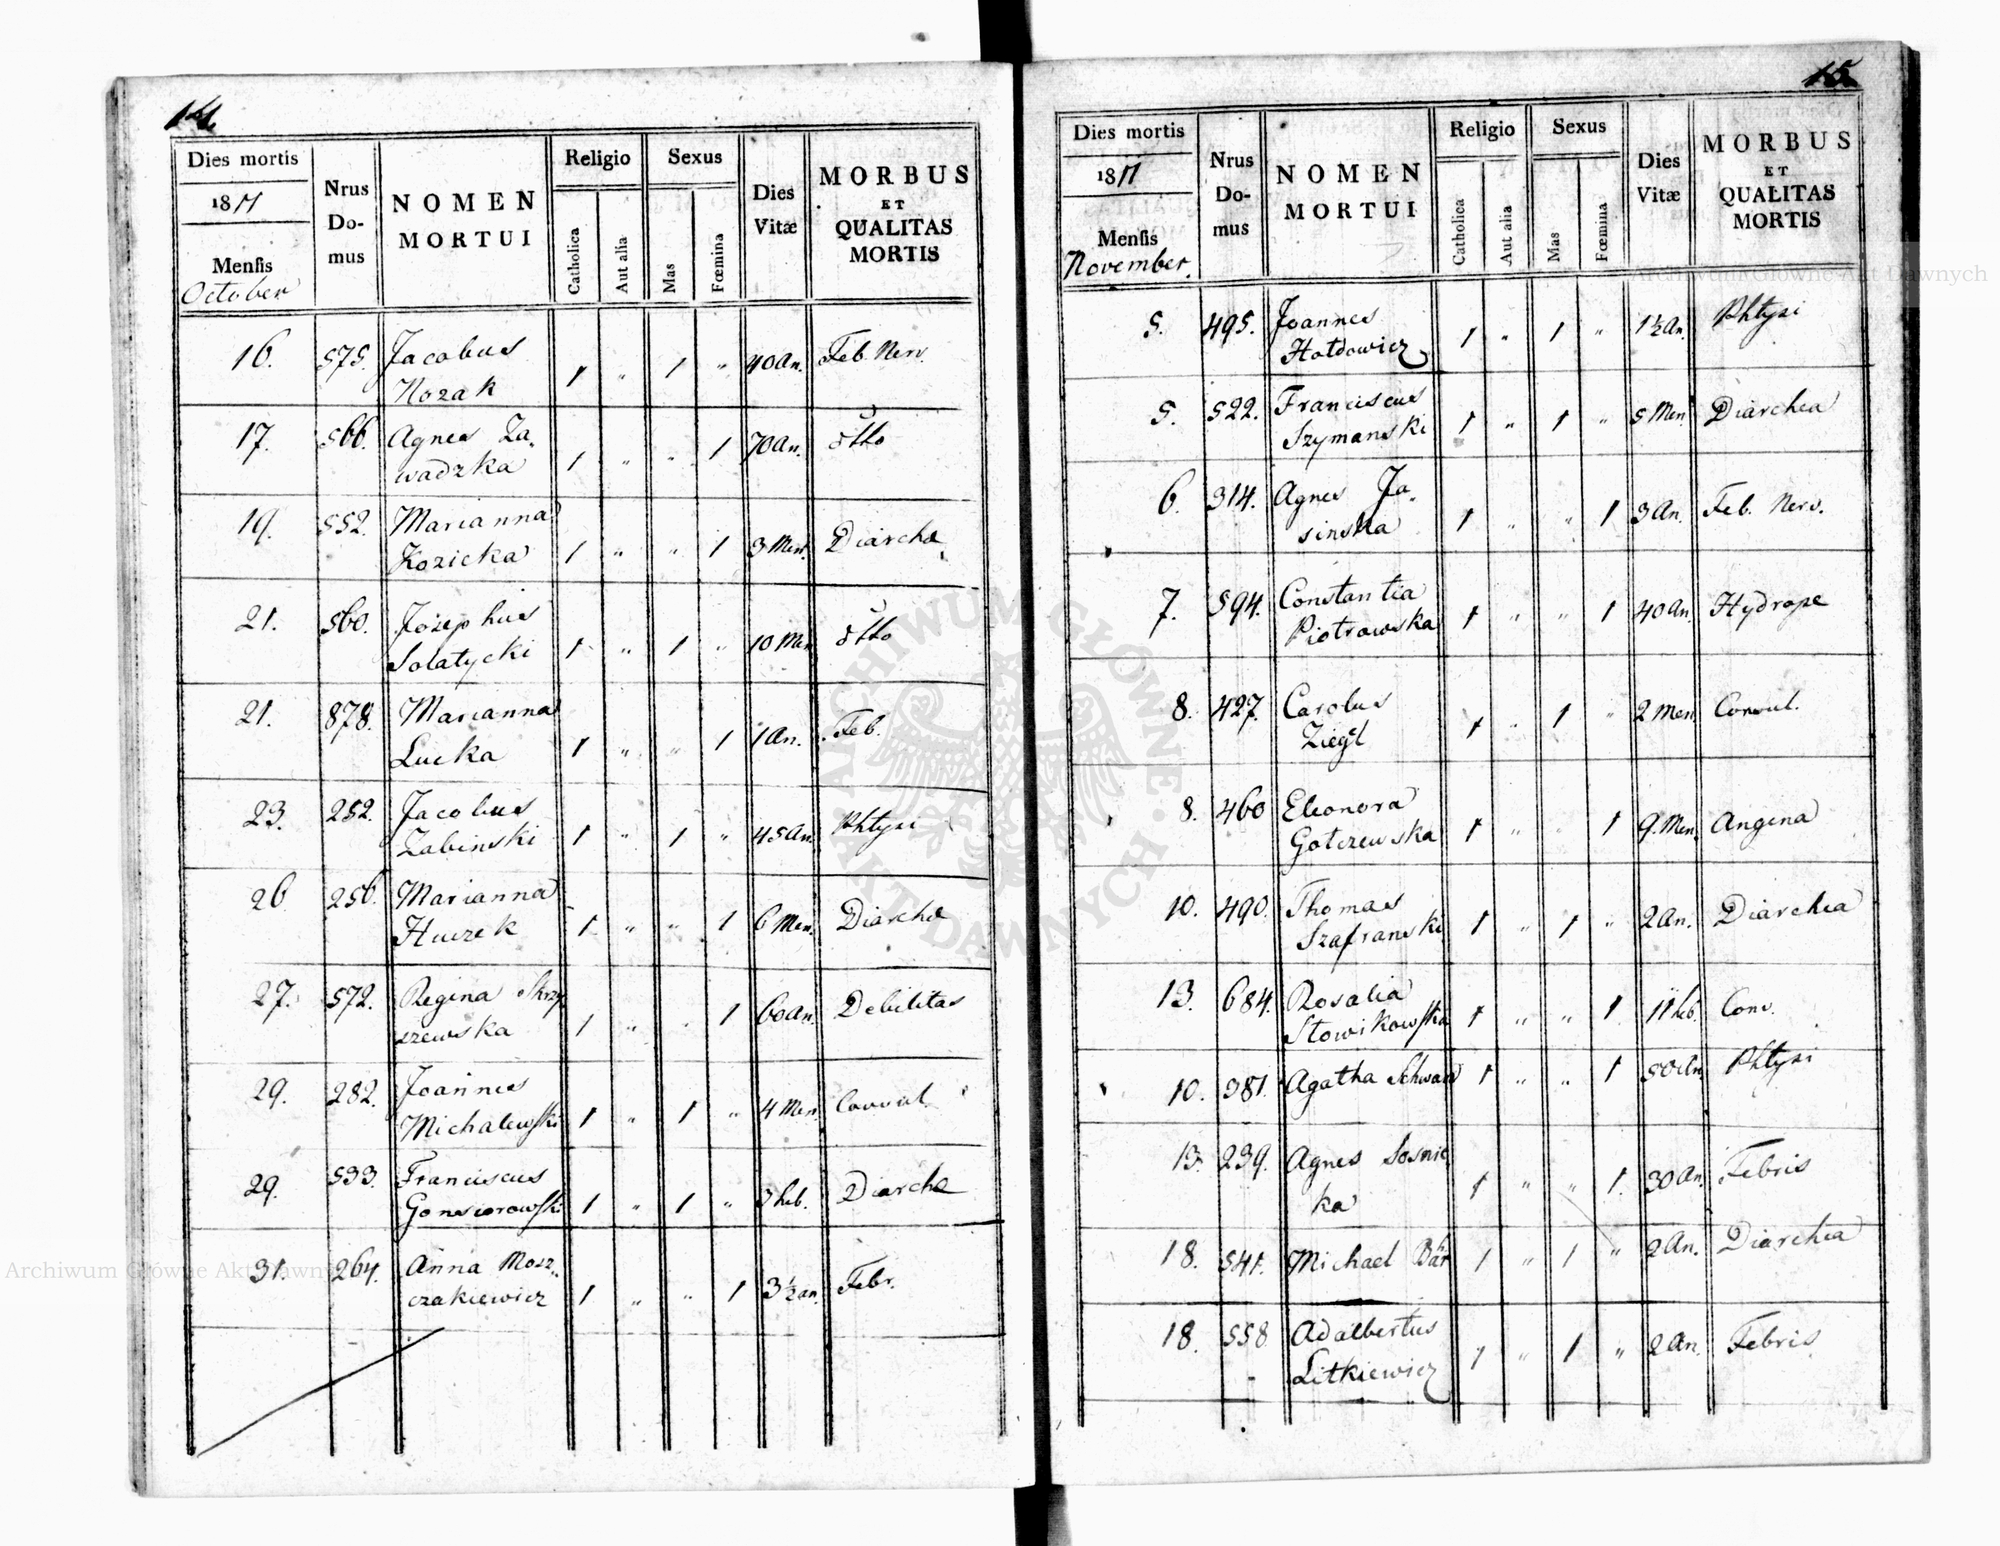 14.
Dies mortis
1811
Mensis
October
Nrus Do- mus
NOMEN MORTUI
Religio
Catholica
Aut alia
Sexus
Mas
Fœmina
Dies Vitæ
MORBUS ET QUALITAS MORTIS
16. 575. Jacobus 40 An. Feb. Nerv.
Nozak 1 " 1 "
17. 566. Agnes Za, 70 An. dtto
wadzka 1 " " 1
19. 552. Marianna
Kozicka 1 " " 1 3 Men. Diarche
21. 560. Józephus dtto
Solatycki 1 " 1 " 10 Men
21. 878. Marianna Feb.
Lucka 1 " " 1 1 An.
23. 252. Jacobus Phtysi
Zabinski 1 " 1 " 45 An.
26 256. Marianna
Huczek 1 " " 1 6 Men. Diarche
27. 572. Regina Skrzy Debilitas
szewska 1 " " 1 60 An.
29. 282. Joannes
Michalewski 1 " 1 " 4 Men. Convul.
29. 533. Franciscus Diarche
Gonsiorowski 1 " 1 " 3 heb.
31. 264. Anna Mosz, Febr.
czakiewicz 1 " " 1 3½ an.
15
Dies mortis
1811
Mensis
November.
Nrus Do- mus
NOMEN MORTUI
Religio
Catholica
Aut alia
Sexus
Mas
Fœmina
Dies Vitæ
MORBUS ET QUALITAS MORTIS
5. 495. Joannes 1½ An. Phtysi
Hołdowicz 1 " 1 "
5. 522. Franciscus 5 Men Diarchea
Szymanski 1 " 1 "
6. 314. Agnes Ja, Feb. Nerv.
sinska 1 " " 1 3 An.
7. 594. Constantia Hydrope
Piotrowska 1 " " 1 40 An.
8. 427. Carolus 2 Men Convul.
Ziegl 1 " 1 "
8. 460 Eleonora Angina
Gotczewska 1 " " 1 9 Men.
10. 490. Thomas Diarchea
Szafranski 1 " 1 " 2 An.
13. 684. Rosalia Conv.
Słowikowska 1 " " 1 11 heb.
10. 381. Agatha 1 " " 1 50 An. Phtysi
13. 239. Agnes Sosnic, Febris
ka 1 " " 1. 30 An.
18. 541. Michael Bär 1 " 1 " 2 An. Diarchea
18. 558 Adalbertus Febris
Litkiewicz 1 " 1 " 2 An.
Archiwum Główne Akt Dawnych
Archiwum Główne Akt Dawnych
ARCHIWUM GŁÓWNE · AKT DAWNYCH ·